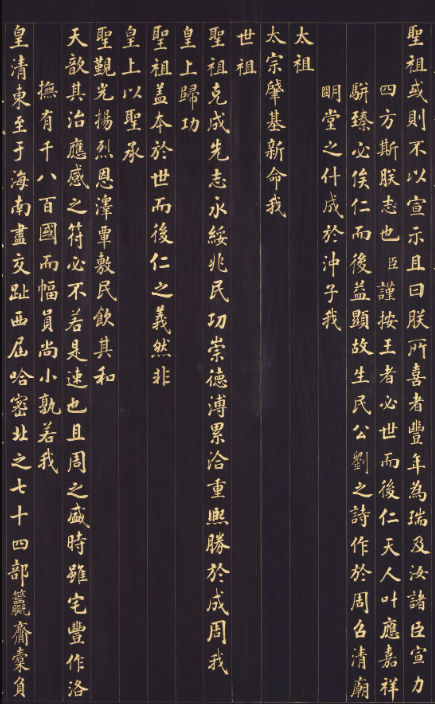 聖祖或則不以宣示且曰朕所喜者豐年為瑞及汝諸臣宣力
四方斯朕志也臣謹按王者必世而後仁天人叶應嘉祥
駢臻必俟仁而後益顯故生民公劉之詩作於周召清廟
明堂之什成於沖子我
太祖
太宗肇基新命我
世祖
聖祖克成先志永綏兆民功崇德溥累洽重熙勝於成周我
皇上歸功
聖祖蓋本於世而後仁之義然非
皇上以聖承
聖覲光揚烈恩澤覃敷民飲其和
天歆其治應感之符必不若是速也且周之盛時雖宅豐作洛
撫有千八百國而幅員尚小孰若我
皇清東至于海南盡交趾西屆哈密北之七十四部籯齎橐負